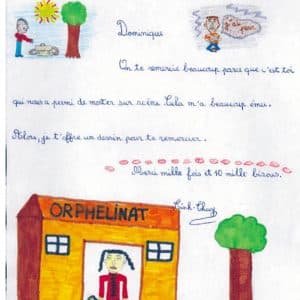 Dominique
j'ai peur
On te remercie beaucoup parce que c'est toi
qui nous a permi de monter sur scène. Cela m'a beaucoup ému.
Alors, je t'offre un dessin pour te remercier.
Merci mille fois et 10 mille bisous.
ORPHELINAT